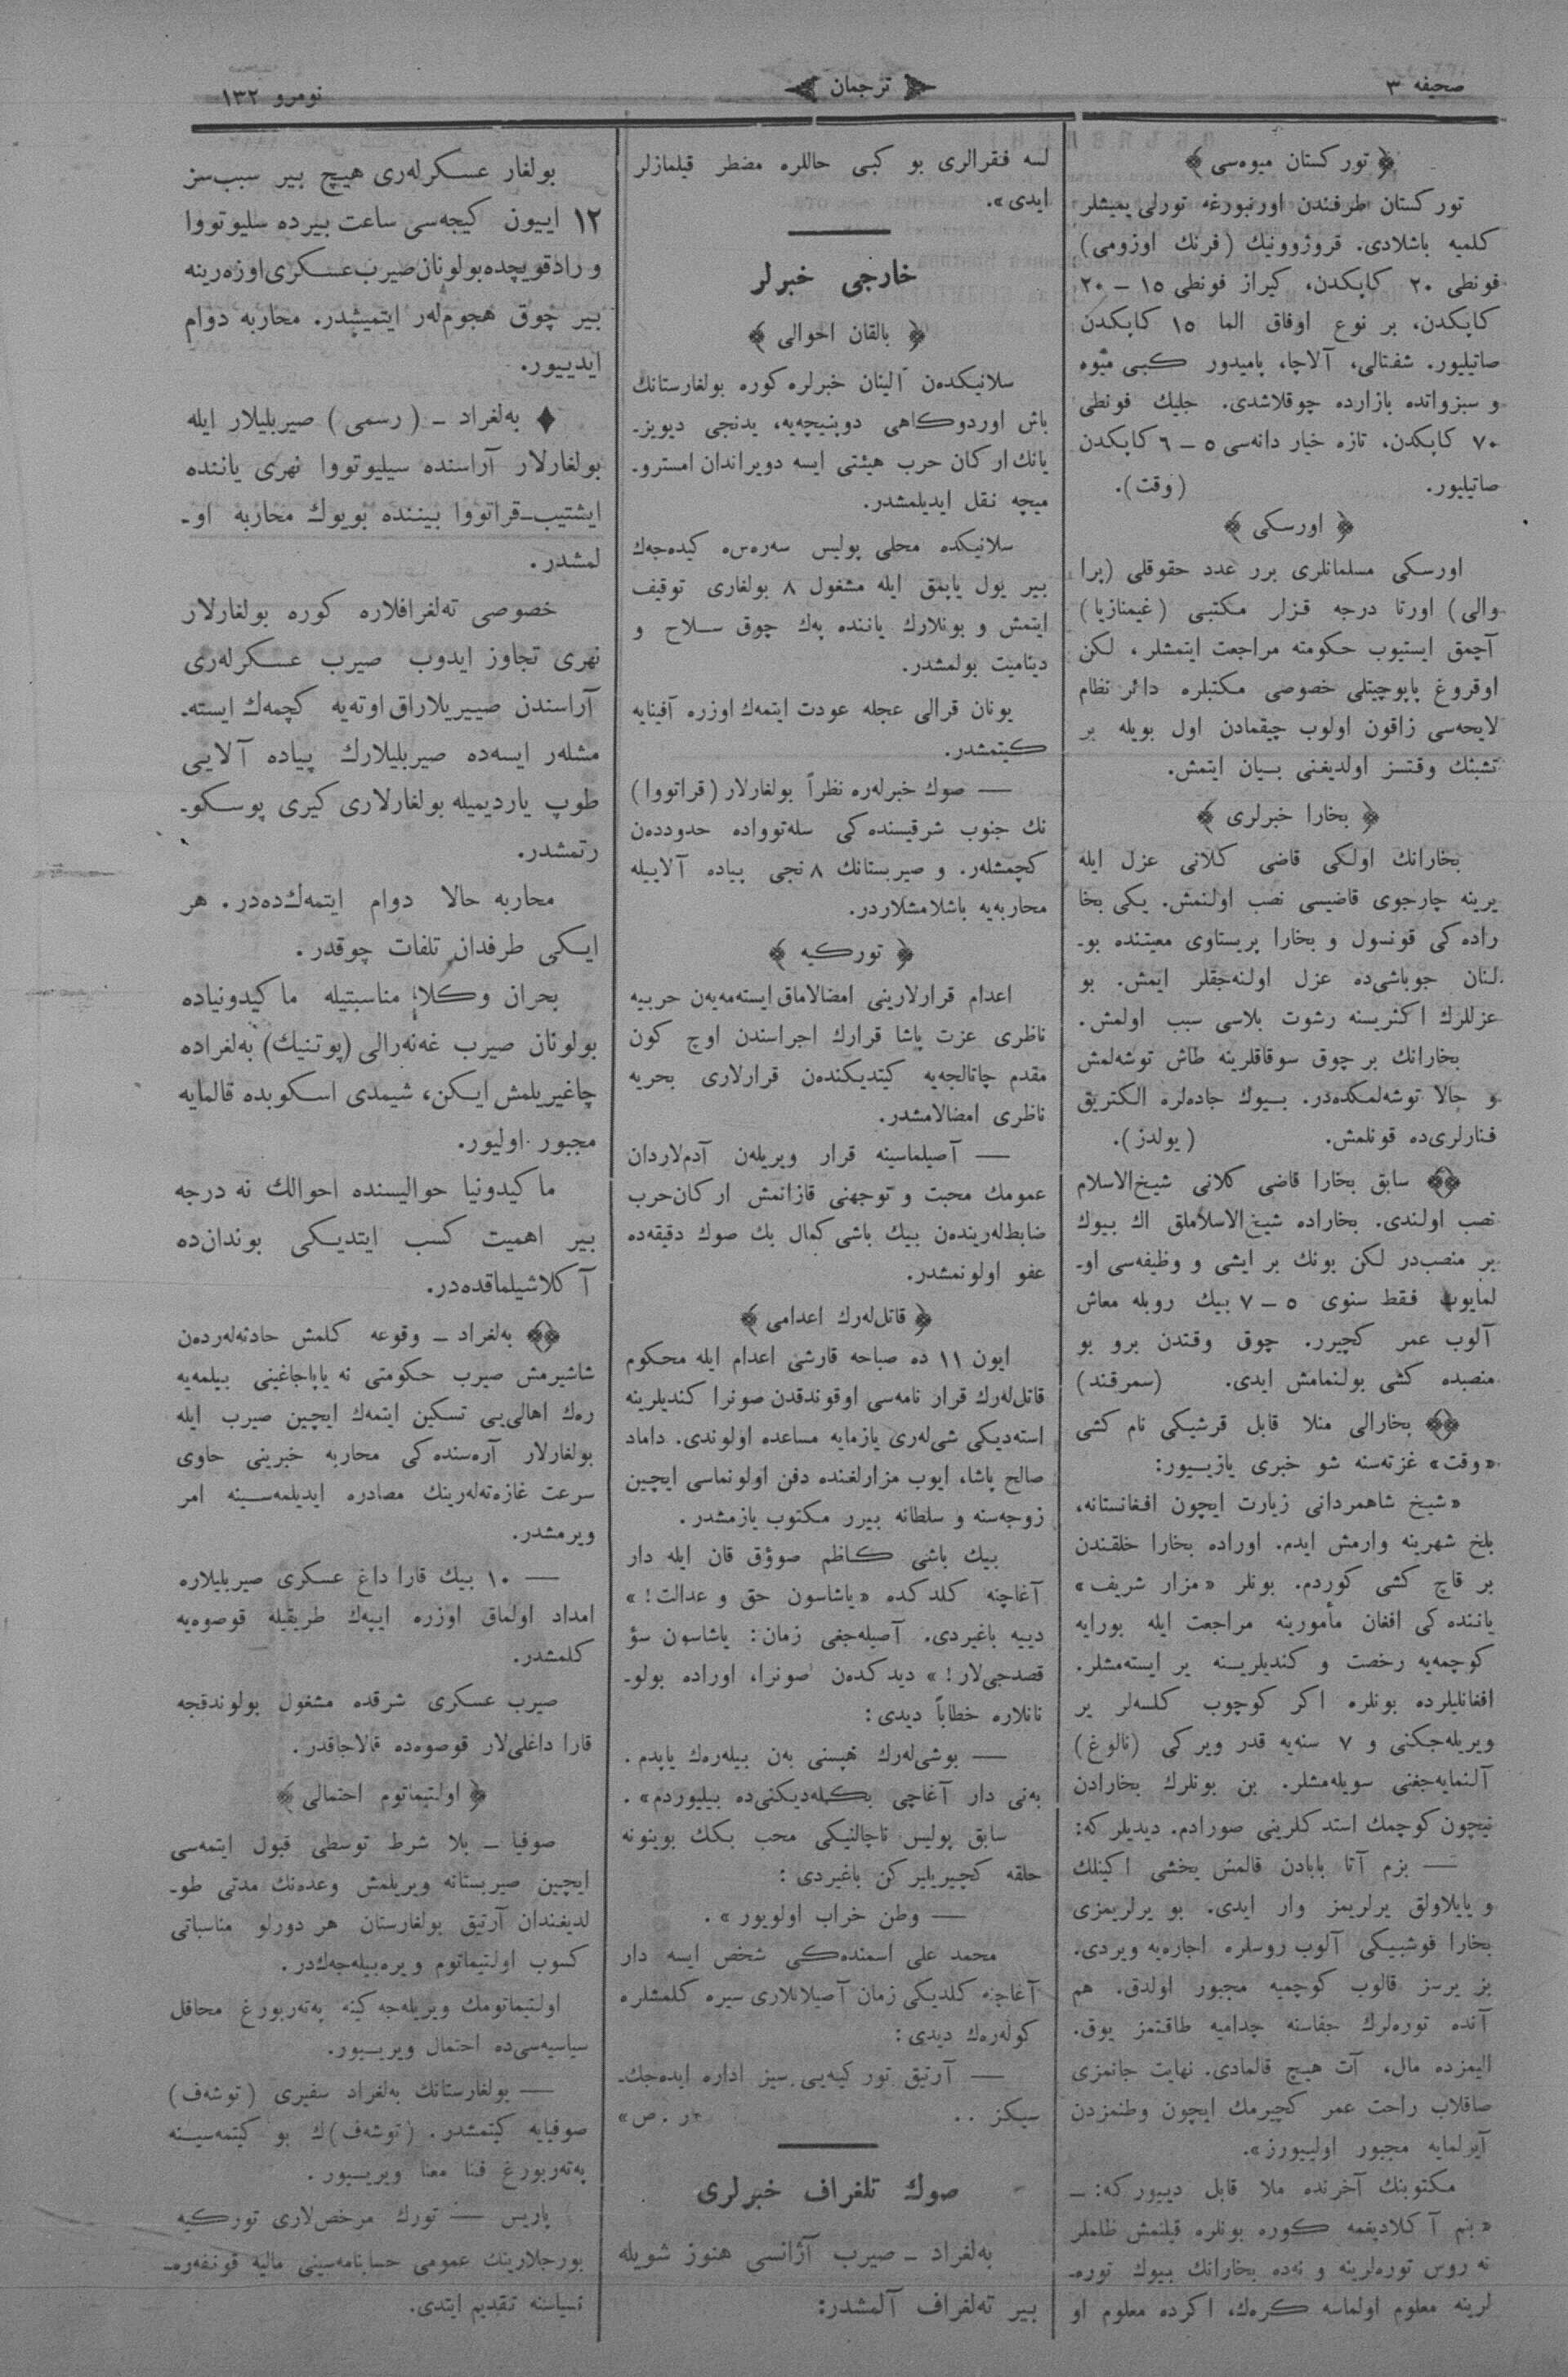 صحيفه ٣
ترجمان
نومرو ١٣٢
توركستان ميوه‌سى
توركستان طرفندن اورنبورغه تورلى يميشلر
كلميه باشلادى. قروژوونيك (فرنك اوزومى)
فونطى ٢٠ كاپكدن، كيراز فونطى ١٥ – ٢٠
كاپكدن، بر نوع اوفاق الما ١٥ كاپكدن
صاتيليور. شفتالى، آلاچا، پاميدور كبى ميوه
و سبزواتده بازارده چوقلاشدى. جليك فونطى
٧٠ كاپكدن، تازه خيار دانه‌سى ٥ – ٦ كاپكدن
صاتيليور. (وقت).
اورسكى
اورسكى مسلمانلرى برر عدد حقوقلى (پرا
والى) اورتا درجه قزلر مكتبى (غيمنازيا)
آچمق ايستيوب حكومته مراجعت ايتمشلر، لكن
اوقروغ پاپوچيتلى خصوصى مكتبلره دائر نظام
لايحه‌سى زاقون اولوب چيقمادن اول بويله بر
تشبثك وقتسز اولديغنى بيان ايتمش.
بخارا خبرلرى
بخارانك اولكى قاضى كلانى عزل ايله
يرينه چارجوى قاضيسى نصب اولنمش. يكى بخا
راده‌كى قونسول و بخارا پريستاوى معيتنده بو-
لنان جوباشى‌ده عزل اولنه‌جقلر ايمش. بو
عزللرك اكثريسنه رشوت بلاسى سبب اولمش.
بخارانك بر چوق سوقاقلرينه طاش توشه‌لمش
و حالا توشه‌لمكده‌در. بيوك جاده‌لره الكتريق
فنارلرى‌ده قونلمش. (يولدز).
سابق بخارا قاضى كلانى شيخ‌الاسلام
نصب اولندى. بخاراده شيخ‌الاسلاملق اك بيوك
بر منصب‌در لكن بونك بر ايشى و وظيفه‌سى او-
لمايوب فقط سنوى ٥ – ٧ بيك روبله معاش
آلوب عمر كچيرر. چوق وقتدن برو بو
منصبده كشى بولنمامش ايدى. (سمرقند)
بخارالى منلا قابل قرشيكى نام كشى
«وقت» غزته‌سنه شو خبرى يازيور:
«شيخ شاهمردانى زيارت ايچون افغانستانه،
بلخ شهرينه وارمش ايدم. اوراده بخارا خلقندن
بر قاچ كشى كوردم. بونلر «مزار شريف»
ياننده‌كى افغان مأمورينه مراجعت ايله بورايه
كوچمه‌يه رخصت و كنديلرينه ير ايسته‌مشلر.
افغانليلرده بونلره اكر كوچوب كلسه‌لر ير
ويريله‌جكنى و ٧ سنه‌يه قدر ويركى (نالوغ)
آلنمايه‌جغنى سويله‌مشلر. بن بونلرك بخارادن
نيچون كوچمك استدكلرينى صورادم. ديديلركه:
— بزم آتا بابادن قالمش يخشى اكينلك
و يايلاولق يرلريمز وار ايدى. بو يرلريمزى
بخارا قوشبيكى آلوب روسلره اجاره‌يه ويردى.
بز يرسز قالوب كوچميه مجبور اولدق. هم
آنده توره‌لرك جفاسنه چداميه طاقتمز يوق.
اليمزده مال، آت هيچ قالمادى. نهايت جانمزى
صاقلاب راحت عمر كچيرمك ايچون وطنمزدن
آيرلمايه مجبور اولييورز».
مكتوبنك آخرنده ملا قابل دييوركه: –
«بنم آكلاديغمه كوره بونلره قيلنمش ظلملر
نه روس توره‌لرينه و نه‌ده بخارانك بيوك توره-
لرينه معلوم اولماسه كرەك، اكرده معلوم او
لسه فقرالرى بو كبى حاللره مضطر قيلمازلر
ايدى».
خارجى خبرلر
بالقان احوالى
سلانيكده‌ن آلينان خبرلره كوره بولغارستانك
باش اوردوكاهى دوپنيچه‌يه، يدنجى ديويز-
يانك اركان حرب هيئتى ايسه دويراندان استرو-
ميچه نقل ايديلمشدر.
سلانيكده محلى پوليس سه‌ره‌سه كيده‌جه‌ك
بير يول ياپمق ايله مشغول ٨ بولغارى توقيف
ايتمش و بونلارك ياننده پەك چوق سلاح و
ديناميت بولمشدر.
يونان قرالى عجله عودت ايتمه‌ك اوزره آفينايه
كيتمشدر.
— صوك خبرله‌ره نظراً بولغارلار (قراتووا)
نك جنوب شرقيسنده‌كى سله‌توواده حدودده‌ن
كچمشله‌ر. و صيربستانك ٨ نجى پياده آلاييله
محاربه‌يه باشلامشلاردر.
توركيه
اعدام قرارلارينى امضالاماق ايسته‌مه‌يه‌ن حربيه
ناظرى عزت پاشا قرارك اجراسندن اوچ كون
مقدم چاتالجه‌يه كيتديكنده‌ن قرارلارى بحريه
ناظرى امضالامشدر.
— آصيلماسينه قرار ويريله‌ن آدم‌لاردان
عمومك محبت و توجهنى قازانمش اركان‌حرب
ضابطله‌رينده‌ن بيك باشى كمال بك صوك دقيقه‌ده
عفو اولونمشدر.
قاتل‌له‌رك اعدامى
ايون ١١ ده صباحه قارشى اعدام ايله محكوم
قاتل‌له‌رك قرار نامه‌سى اوقوندقدن صونرا كنديلرينه
استه‌ديكى شى‌له‌رى يازمايه مساعده اولوندى. داماد
صالح پاشا، ايوب مزارلغنده دفن اولونماسى ايچين
زوجه‌سنه و سلطانه بيرر مكتوب يازمشدر.
بيك باشى كاظم صوؤق قان ايله دار
آغاچنه كلدكده «ياشاسون حق و عدالت!»
دييه باغيردى. آصيله‌جغى زمان: ياشاسون سؤ
قصدجى‌لار!» ديدكده‌ن صونرا، اوراده بولو-
نانلاره خطاباً ديدى:
— بوشى‌له‌رك هپسنى به‌ن بيله‌ره‌ك ياپدم.
به‌نى دار آغاچى بكله‌ديكنى‌ده بيليوردم».
سابق پوليس ناچالنيكى محب بكك بوينونه
حلقه كچيريليركن باغيردى:
— وطن خراب اولويور».
محمد على اسمنده‌كى شخص ايسه دار
آغاچنه كلديكى زمان آصيلانلارى سيره كلمشلره
كوله‌ره‌ك ديدى:
— آرتيق توركيه‌يى سيز اداره ايده‌جك-
سيكز .. «ر. ص»
صوك تلغراف خبرلرى
به‌لغراد – صيرب آژانسى هنوز شويله
بير ته‌لغراف آلمشدر:
بولغار عسكرله‌رى هيچ بير سبب‌سز
١٢ اييون كيجه‌سى ساعت بيرده سليوتووا
و رادقويچده بولونان صيرب عسكرى اوزه‌رينه
بير چوق هجوم‌له‌ر ايتميشدر. محاربه دوام
ايدييور.
به‌لغراد – (رسمى) صيربليلار ايله
بولغارلار آراسنده سيليوتووا نهرى ياننده
ايشتيب–قراتووا بيننده بويوك محاربه او-
لمشدر.
خصوصى ته‌لغرافلاره كوره بولغارلار
نهرى تجاوز ايدوب صيرب عسكرله‌رى
آراسندن صييريلاراق اوته‌يه كچمه‌ك ايسته-
مشله‌ر ايسه‌ده صيربليلارك پياده آلايى
طوپ يارديميله بولغارلارى كيرى پوسكو-
رتمشدر.
محاربه حالا دوام ايتمه‌ك‌ده‌در. هر
ايكى طرفدان تلفات چوقدر.
بحران وكلاء مناسبتيله ماكيدونياده
بولونان صيرب غه‌نه‌رالى (پوتنيك) به‌لغراده
چاغيريلمش ايكن، شيمدى اسكوبده قالمايه
مجبور اوليور.
ماكيدونيا حواليسنده احوالك نه درجه
بير اهميت كسب ايتديكى بوندان‌ده
آكلاشيلماقده‌در.
به‌لغراد – وقوعه كلمش حادثه‌له‌رده‌ن
شاشيرمش صيرب حكومتى نه ياپاجاغينى بيلمه‌يه
ره‌ك اهالى‌يى تسكين ايتمه‌ك ايچين صيرب ايله
بولغارلار آره‌سنده‌كى محاربه خبرينى حاوى
سرعت غازه‌ته‌له‌رينك مصادره ايديلمه‌سينه امر
ويرمشدر.
— ١٠ بيك قارا داغ عسكرى صيربليلاره
امداد اولماق اوزره ايپه‌ك طريقيله قوصوه‌يه
كلمشدر.
صيرب عسكرى شرقده مشغول بولوندقجه
قارا داغلى‌لار قوصوه‌ده قالاجاقدر.
اولتيماتوم احتمالى
صوفيا – بلا شرط توسطى قبول ايتمه‌سى
ايچين صيربستانه ويريلمش وعده‌نك مدتى طو-
لديغندان آرتيق بولغارستان هر دورلو مناسباتى
كسوب اولتيماتوم ويره‌بيله‌جه‌ك‌در.
اولتيماتومك ويريله‌جه‌كينه په‌ته‌ربورغ محافل
سياسيه‌سى‌ده احتمال ويرييور.
— بولغارستانك به‌لغراد سفيرى (توشه‌ف)
صوفيايه كيتمشدر. (توشه‌ف)ك بو كيتمه‌سينه
په‌ته‌ربورغ فنا معنا ويرييور.
پاريس — تورك مرخص‌لارى توركيه
بورجلارينك عمومى حسابنامه‌سينى ماليه قونفه‌ره-
نسياسنه تقديم ايتدى.